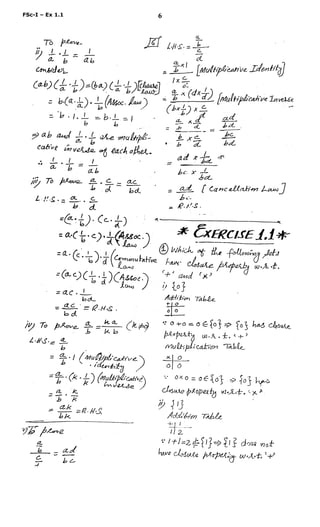 FSc-I - Ex 1.1
6
To prove.
ii) 1/a . 1/b = 1/ab
Consider
(ab)(1/a . 1/b) = (ba)(1/a . 1/b)
= b(a . 1/a) . 1/b (Assoc. Law)
= b . 1 . 1/b = b . 1/b = 1
⇒ ab and 1/a . 1/b are multipli-
cative inverse of each other.
∴ 1/a . 1/b = 1/ab
iii) To prove a/b . c/d = ac/bd
L.H.S. = a/b . c/d
= (a . 1/b) . (c . 1/d)
= a(1/b . c) . 1/d (Assoc. Law)
= a . (c . 1/b) . 1/d (Commutative Law)
= (a.c)(1/b . 1/d) (Assoc. Law)
= ac . 1/bd
= ac/bd = R.H.S.
iv) To prove a/b = ka/kb (k≠0)
L.H.S = a/b
= a/b . 1 (multiplicative identity)
= a/b . (k . 1/k) (multiplicative inverse)
= a/b . k/k
= ak/bk = R.H.S
v) To prove
(a/b)/(c/d) = ad/bc
L.H.S. = (a/b)/(c/d)
= [Multiplicative Identity]
= [multiplicative Inverse
= ad/bc [Cancellation Law]
= R.H.S.
* EXERCISE 1.1 *
① Which of the following sets
have closure property w.r.t.
'+' and 'x'
i) {0}
Addition Table
+ | 0
0 | 0
∵ 0+0 = 0 ∈ {0} ⇒ {0} has closure
property w.r.t. '+'
Multiplication Table
x | 0
0 | 0
∵ 0x0 = 0 ∈ {0} ⇒ {0} has
closure property w.r.t. 'x'
ii) {1}
Addition Table
+ | 1
1 | 2
∵ 1+1=2 ∉ {1} ⇒ {1} does not
have closure property w.r.t '+'